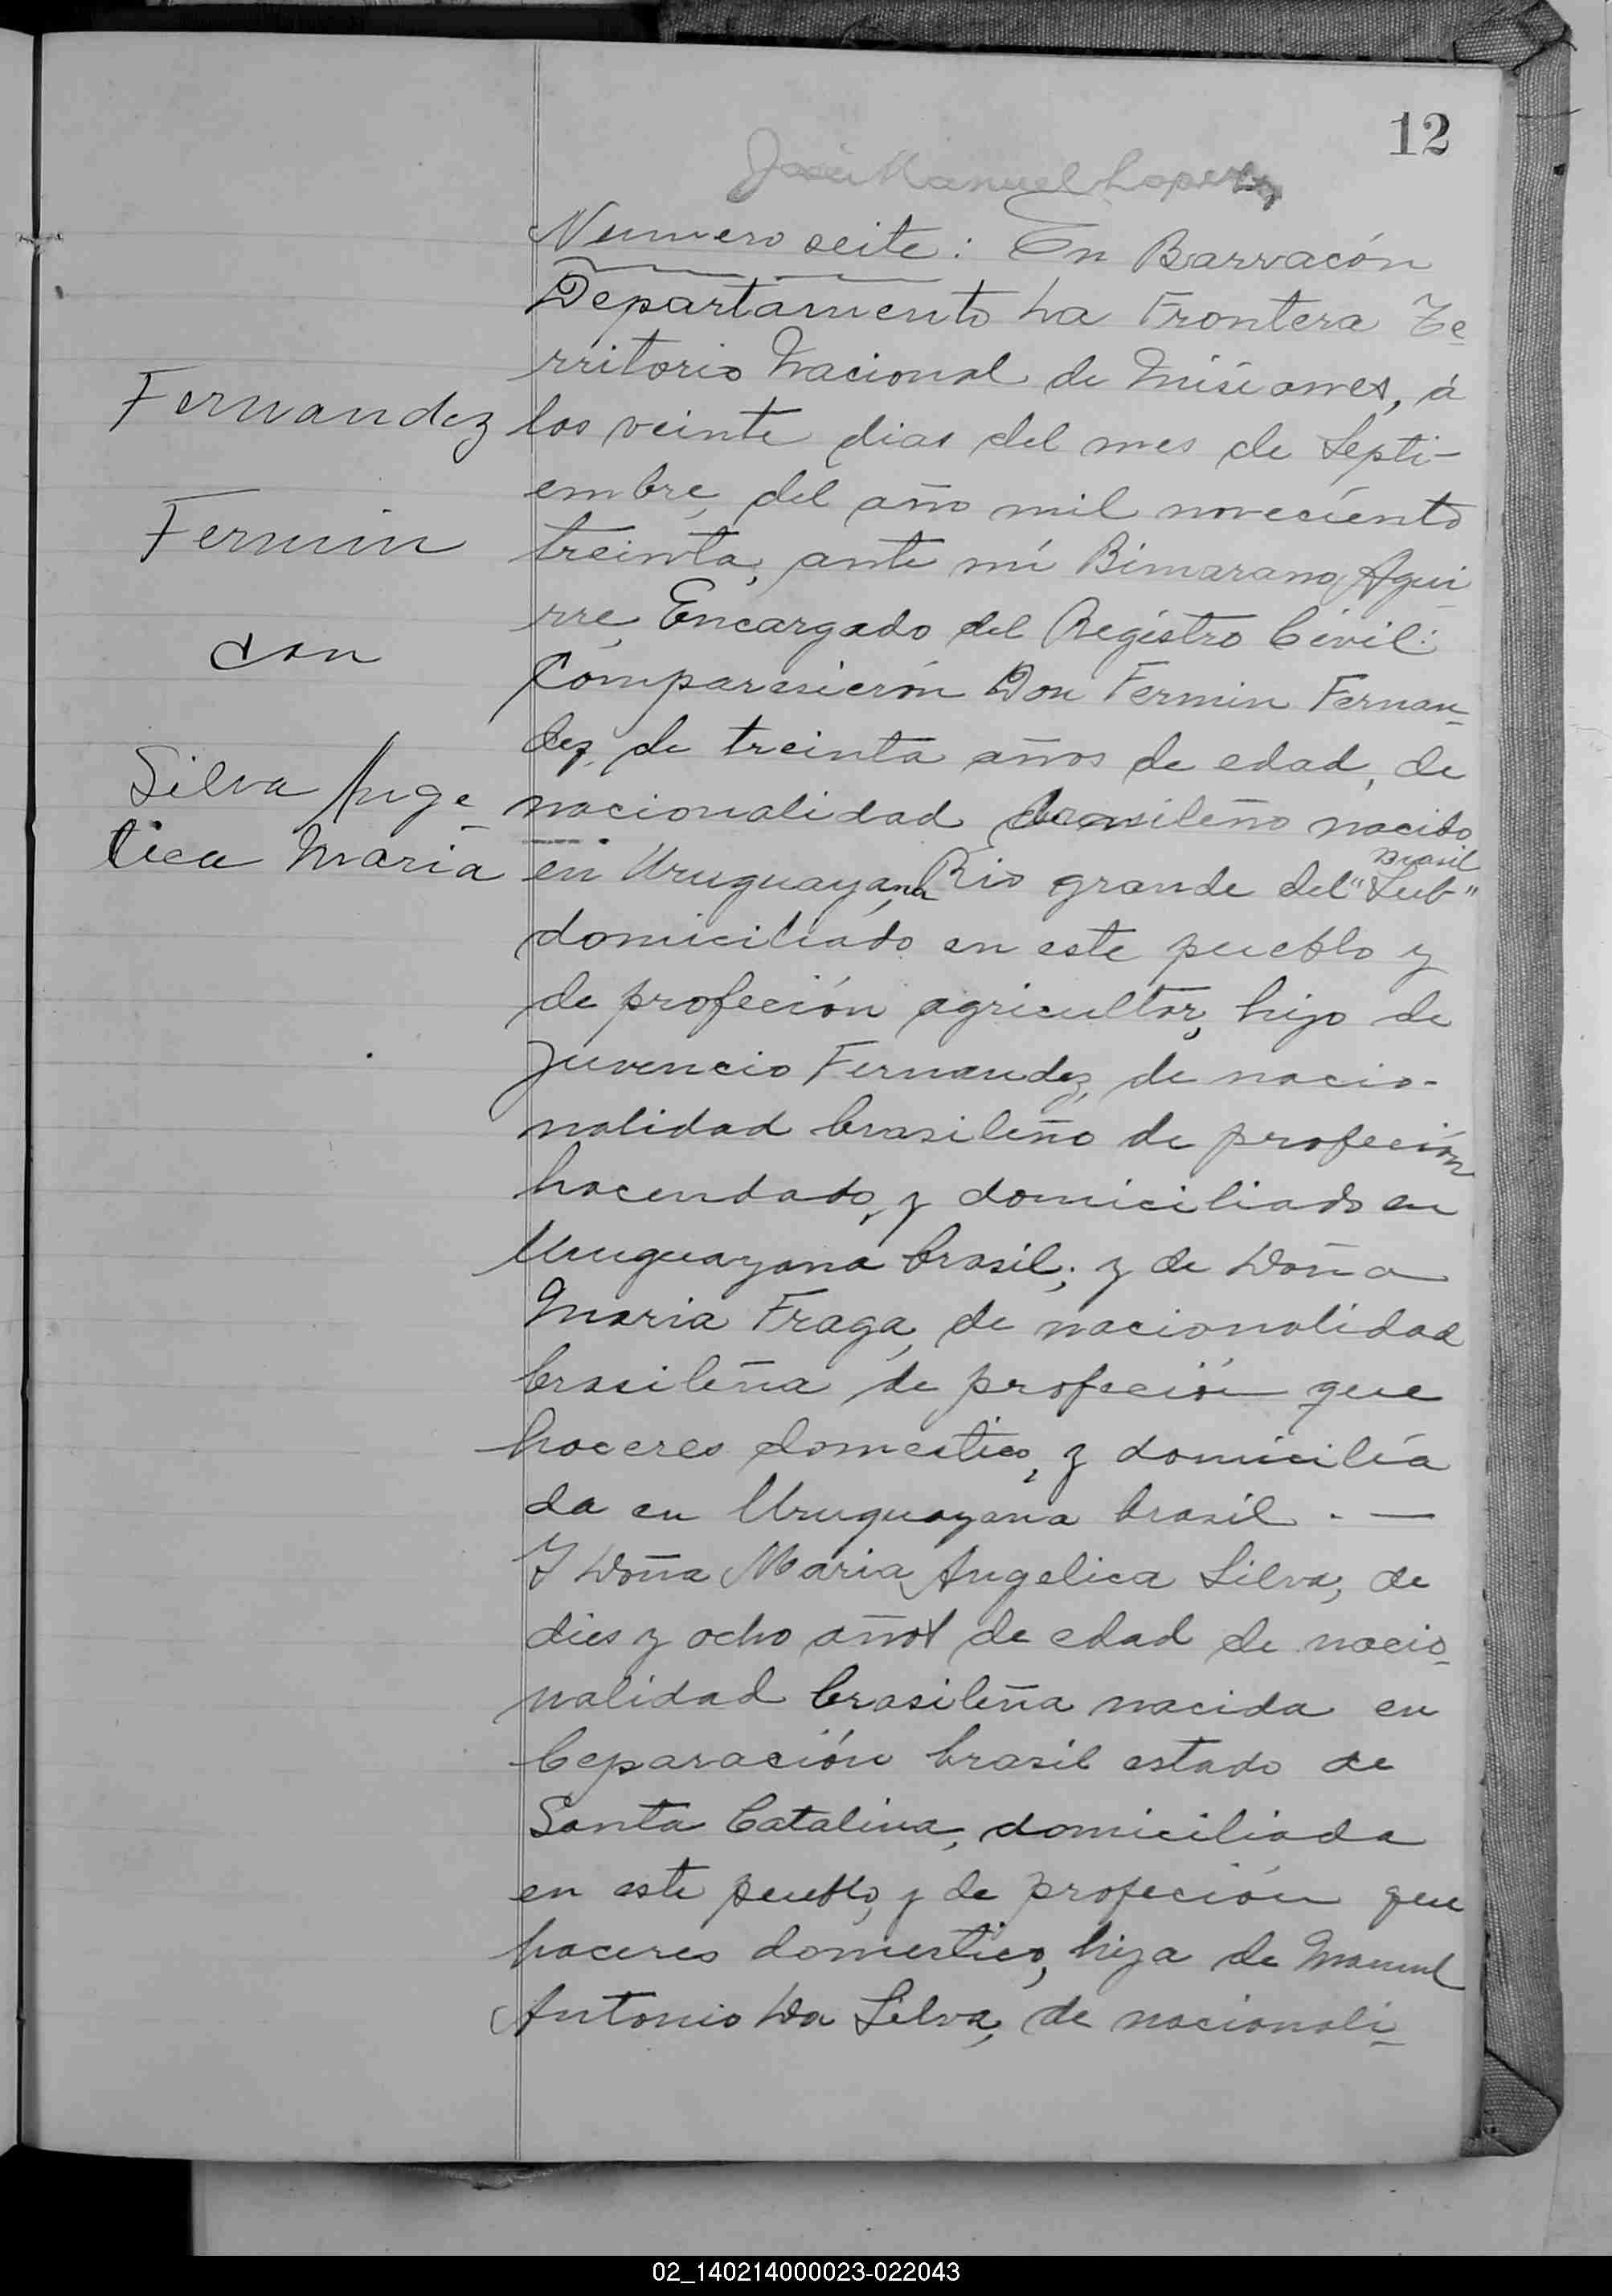 12
José Manuel Lopez
Numero seite: En Barracón
Departamento La Frontera Te
rritorio Nacional de Misiones, á
los veinte dias del mes de Septi-
embre, del año mil noveciento
treinta, ante mi Bimarano Agui
rre, Encargado del Registro Civil:
Comparesierón Don Fermin Fernan-
dez, de treinta años de edad, de
nacionalidad brasileño nacido
Brasil
en Uruguayana, Rio grande del "Sub"
domiciliado en este pueblo y
de profeción agricultor, hijo de
Juvencio Fernandez, de nacio-
nalidad brasileño de profeción
hacendado, y domiciliado en
Uruguayana brasil; y de Doña
Maria Fraga, de nacionalidad
brasileña de profeción que
haceres domestico, y domicilia
da en Uruguayana brasil. —
Y Doña Maria Angelica Silva, de
dies y ocho años de edad de nacio-
nalidad brasileña nacida en
Ceparación brasil estado de
Santa Catalina, domiciliada
en este pueblo, y de profeción que
haceres domestico, hija de Manuel
Antonio Da Silva, de nacionali-
Fernandez
Fermin
con
Silva Ange-
lica Maria
02_140214000023-022043